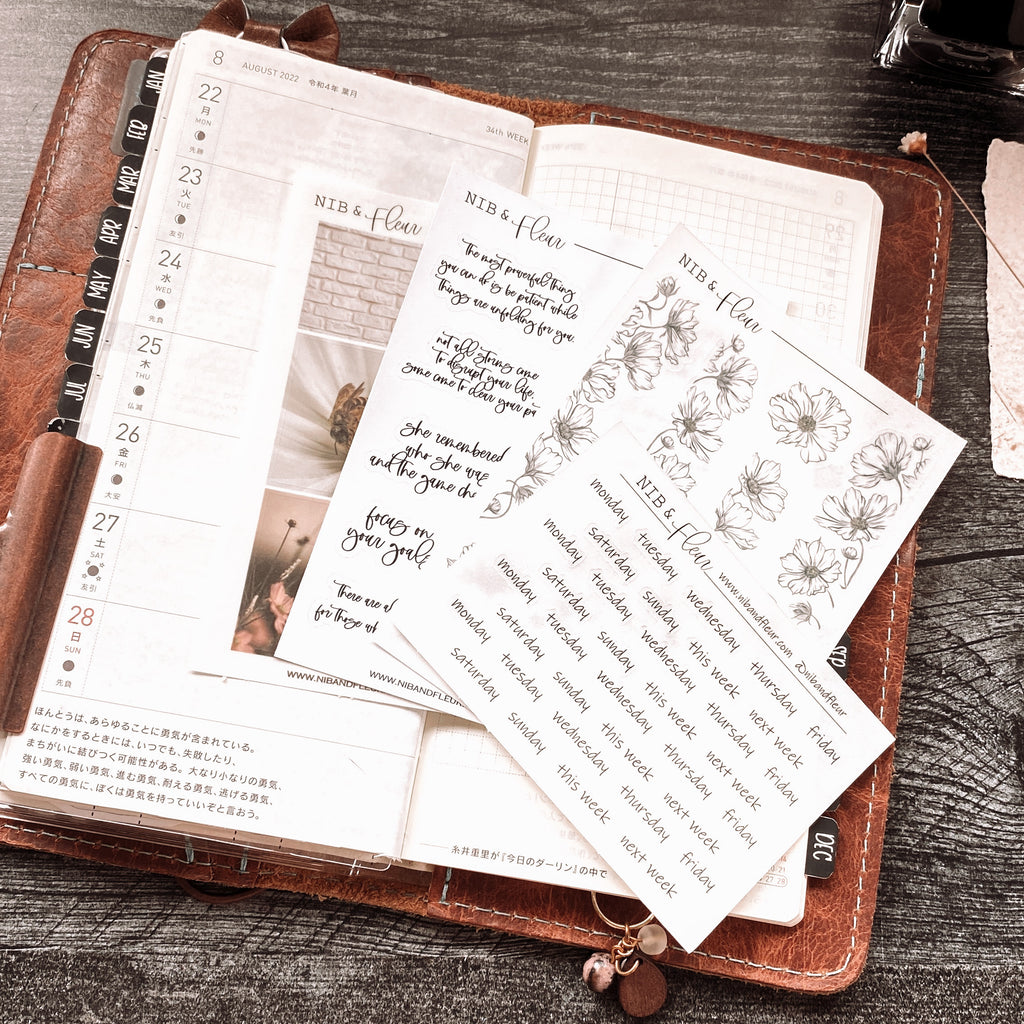 8 AUGUST 2022 令和4年 葉月
34th WEEK
22
月
MON
先勝
23
火
TUE
友引
24
水
WED
先負
25
木
THU
仏滅
26
金
FRI
大安
27
土
SAT
友引
28
日
SUN
先負
ほんとうは、あらゆることに勇気が含まれている。
なにかをするときには、いつでも、失敗したり、
まちがいに結びつく可能性がある。大なり小なりの勇気、
強い勇気、弱い勇気、進む勇気、耐える勇気、逃げる勇気、
すべての勇気に、ぼくは勇気を持っていいぞと言おう。
糸井重里が『今日のダーリン』の中で
JAN
FEB
MAR
APR
MAY
JUN
JUL
SEP
DEC
NIB & Fleur
WWW.NIBANDFLEUR
NIB & Fleur
The most powerful thing
you can do is be patient while
things are unfolding for you.
not all storms come
to disrupt your life,
some come to clear your
she remembered
who she was
and the game
focus on
your goals
There are
for those
WWW.NIBANDFLEUR
NIB & Fleur
NIB & Fleur
www.nibandfleur.com @nibandfleur
monday tuesday wednesday thursday friday
saturday sunday this week next week
monday tuesday wednesday thursday friday
saturday sunday this week next week
monday tuesday wednesday thursday friday
saturday sunday this week next week
monday tuesday wednesday thursday friday
saturday sunday this week next week